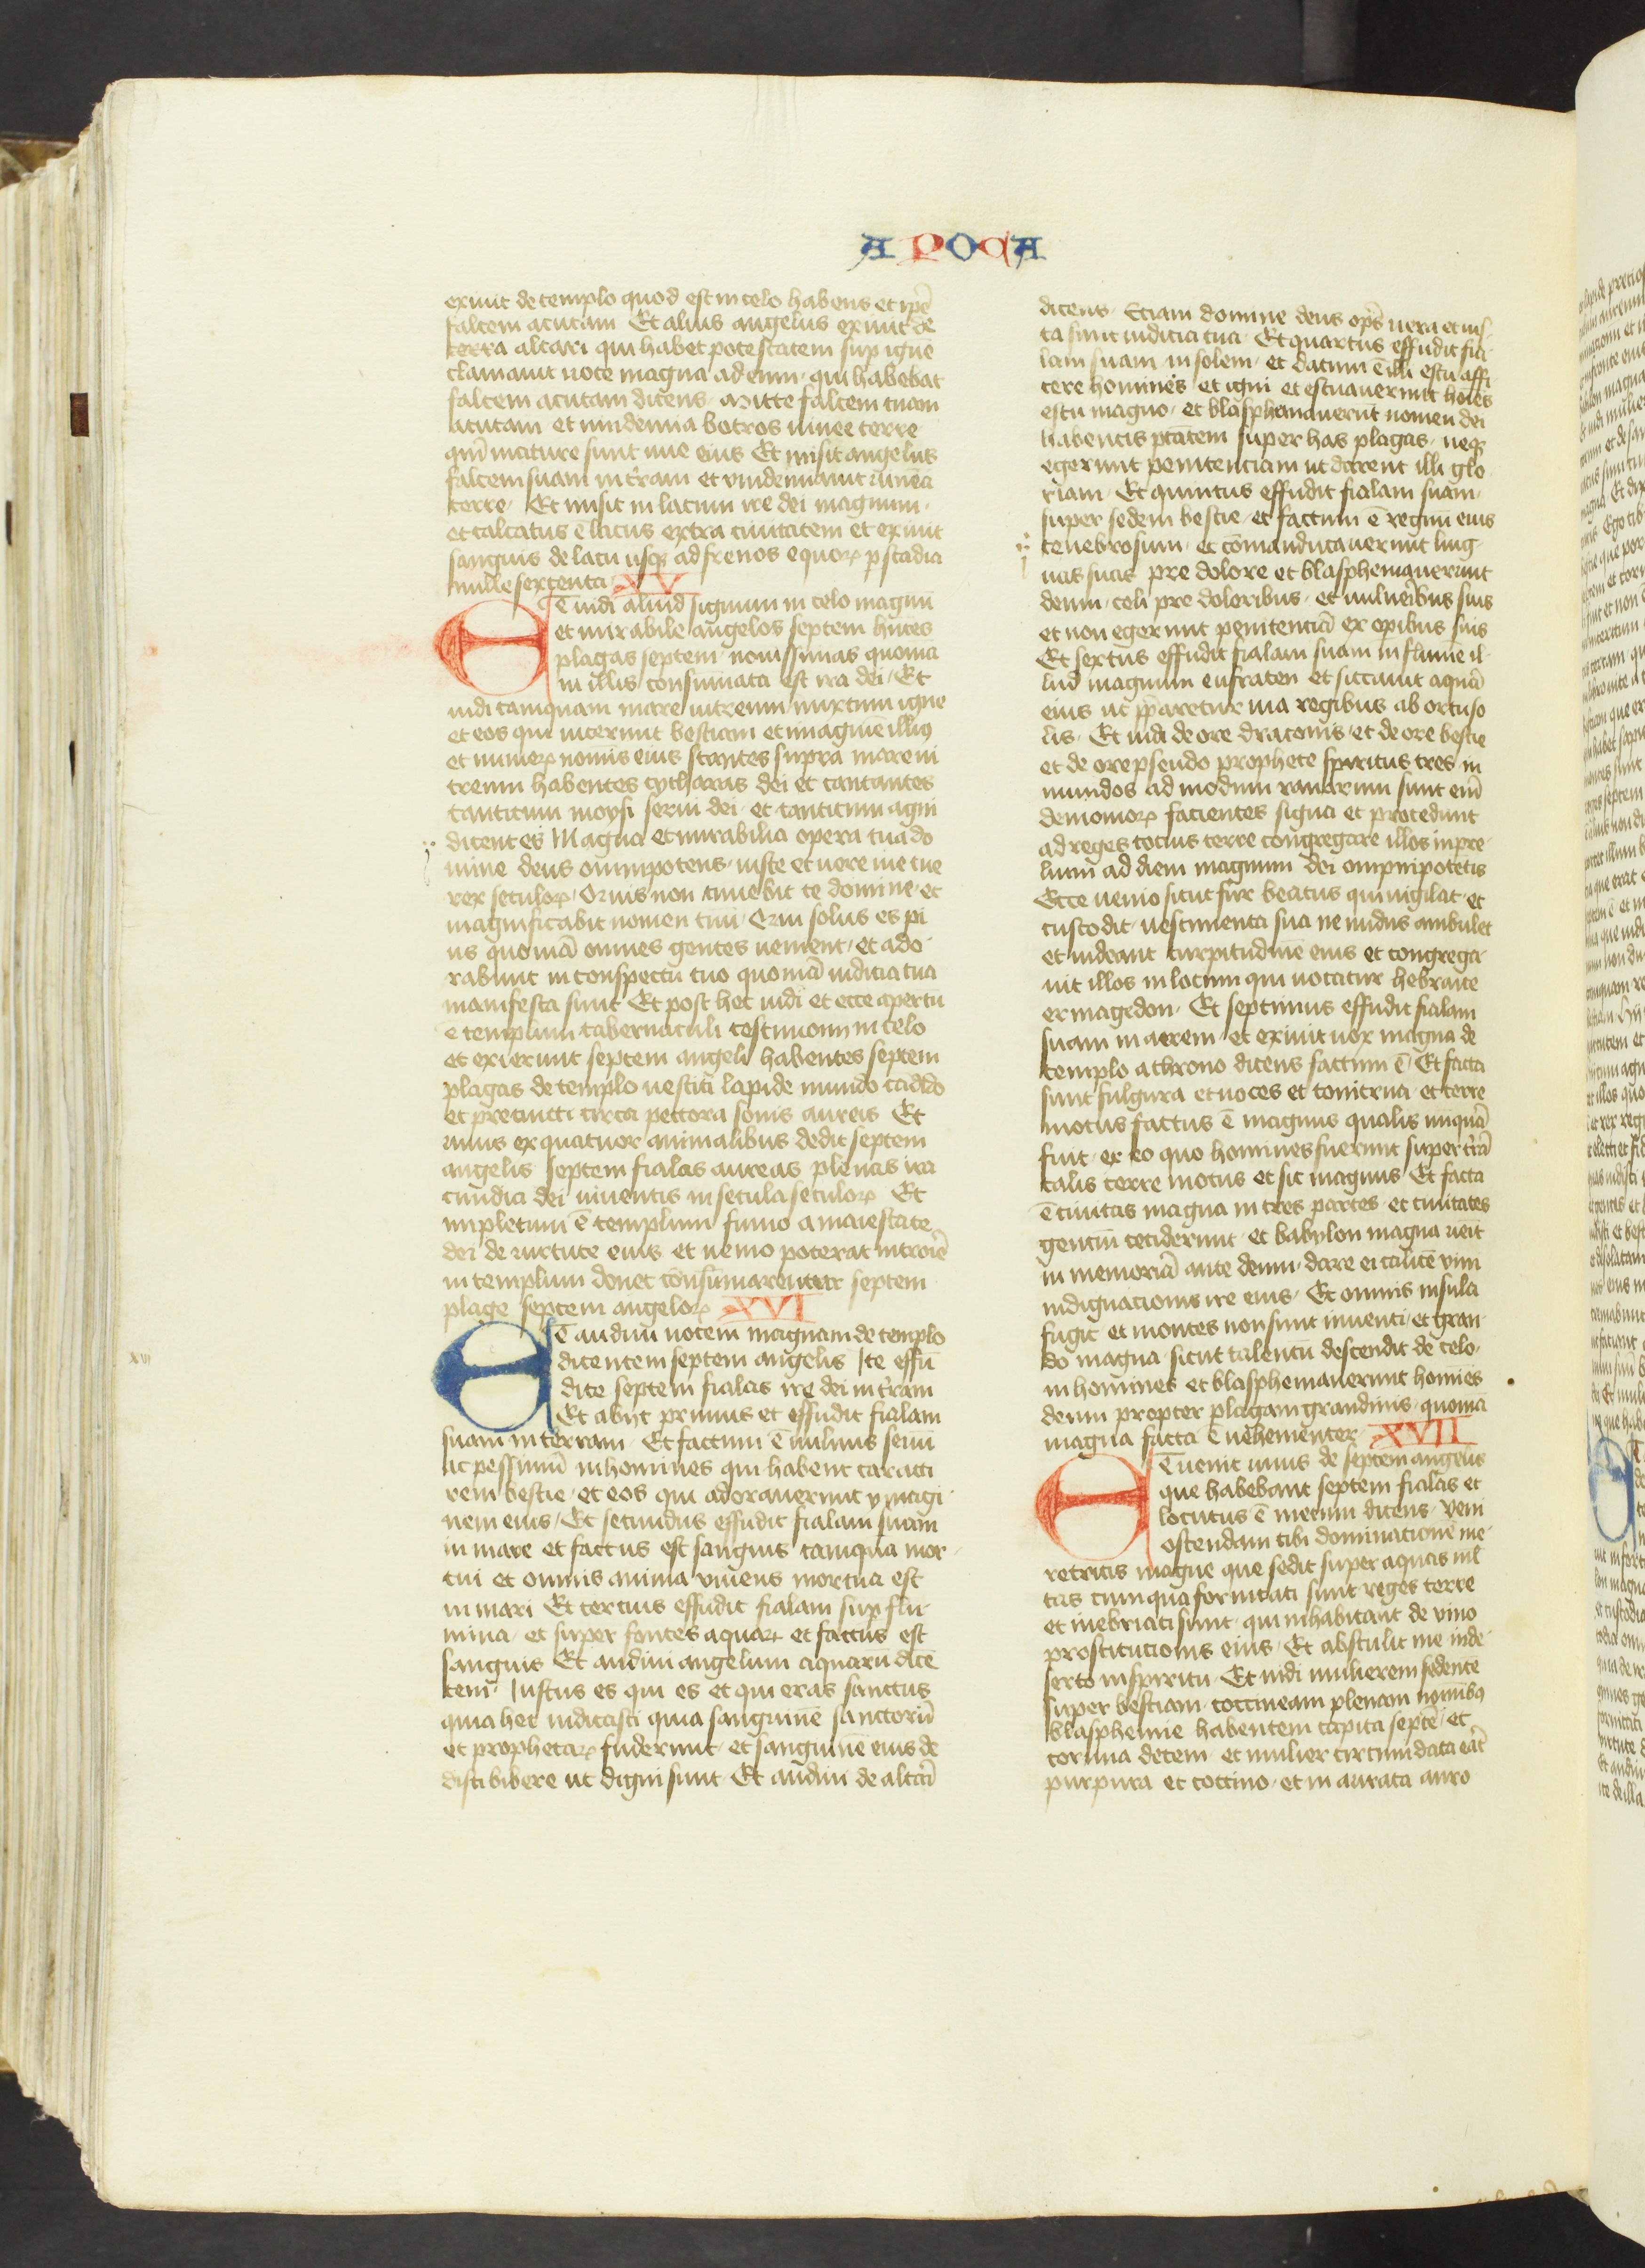 APOCA
exiuit de templo quod est in celo habens et ip̄e
falcem acutam Et alius angelus exiuit de
terra altari qui habet potestatem sup ignē
clamauit uoce magna ad eum · qui habebat
falcem acutam dicens · Mitte falcem tuam
acutam et uindemia botros uinee terre
qm̄ mature sunt uue eius Et misit angelus
falcem suam in tr̄am et vindemiauit uineā
terre · Et misit in lacum ire dei magnum ·
et calcatus ē lacus extra ciuitatem et exiuit
sanguis de lacu usqꝫ ad frenos equoꝝ p stadia
mille sexcenta · XV
Et uidi aliud signum in celo magnū
et mirabile angelos septem hn̄tes
plagas septem · nouissimas quoniā
in illis consumata est ira dei · Et
uidi tamquam mare uitreum mixtum igne
et eos qui uicerunt bestiam et imaginē illiꝰ
et numeꝝ nomīs eius stantes supra mare ui
treum habentes cytharas dei et cantantes
canticum moysi serui dei · et canticum agni
dicentes Magna et mirabilia opera tua do
mine deus omnipotens · iuste et uere uie tue
rex seculoꝝ · Quis non timebit te domine · et
magnificabit nomen tuū · Quia solus es pi
us quoniā omnes gentes uenient · et ado
rabunt in conspectū tuo quoniā iudicia tua
manifesta sunt Et post hec uidi et ecce apertū
ē templum tabernaculi testimonii in celo
et exierunt septem angeli habentes septem
plagas de templo uestiti lapide mundo cādido
et precincti circa pectora sonis aureis Et
unus ex quatuor animalibus dedit septem
angelis septem fialas aureas plenas ira
cundia dei uiuentis in secula seculoꝝ Et
impletum ē templum fumo a maiestate
dei de uirtute eius et nemo poterat introirē
in templum donec consumarentur septem
plage septem angeloꝝ XVI
Et audiui uocem magnam de templo
dicentem septem angelis Ite effū
dite septem fialas ire dei in tr̄am
Et abijt primus et effudit fialam
suam in terram · Et factum ē uulnus seuū
ac pessimū in homines qui habent caracte
rem bestie · et eos qui adorauerunt ymagi
nem eius · Et secundus effudit fialam suam
in mare et factus est sanguis tamquā mor
tui et omnis anima viuens mortua est
in mari Et tercius effudit fialam sup flu
mina · et super fontes aquaꝝ et factus est
sanguis Et audiui angelum aquarū dicē
tem · Iustus es qui es et qui eras sanctus
quia hec iudicasti quia sanguinē sanctorū
et prophetaꝝ fuderunt · et sanguinē eius de
disti bibere ut digni sunt · Et audiui de altāi
dicens · Etiam domine deus op̄s uera et ius
ta sunt iudicia tua · Et quartus effudit fia
lam suam in solem · et datum ē illi estu affi
cere homines et igni et estuauerunt hoīes
estu magno · et blasphemauerūt nomen dei
habentis ptātem super has plagas · neqꝫ
egerunt penitenciam ut darent illi glo
riam · Et quintus effudit fialam suam ·
super sedem bestie · et factum ē regnū eius
tenebrosum · et cōmanducauerunt ling
uas suas pre dolore et blasphemauerunt
deum · celi pre doloribus · et uulneribus suis
et non egerunt penitenciā ex opibus suis
Et sextus effudit fialam suam in flume il
lud magnum eufraten et siccauit aquā
eius ut pp̄aretur uia regibus ab ortu so
lis · Et uidi de ore draconis · et de ore bestie
et de ore pseudo prophete spiritus tres in
mundos ad modum ranarum sunt eni͂
demonioꝝ facientes signa et procedunt
ad reges tocius terre congregare illos in pre
lium ad diem magnum dei ompnipotētis
Ecce uenio sicut fur beatus qui uigilat · et
custodit · uestimenta sua ne nudus ambulet
et uideant turpitudinē eius et congrega
uit illos in locum qui uocatur hebraice
ermagedon · Et septimus effudit fialam
suam in aerem · et exiuit uox magna de
templo a throno dicens factum ē Et facta
sunt fulgura et uoces et tonitrua · et terre
motus factus ē magnus qualis nūquā
fuit · ex eo quo homines fuerunt super tr̄ā
talis terre motus et sic magnus Et facta
ē ciuitas magna in tres partes · et ciuitates
gentiū ceciderunt · et babylon magna uēit
in memoriā ante deum · dare ei calicē vini
indignacionis ire eius · Et omnis insula
fugit et montes non sunt inuenti · et gran
do magna sicut talentū descendit de celo ·
in homines et blasphemauerunt homīes
deum propter plagam grandinis · quoniā
magna facta ē uehementer · XVII
Et uenit unus de septem angelis
que habebant septem fialas et
locutus ē mecum dicens · Veni
ostendam tibi dominacionē me
retricis magne que sedit super aquas ml̄
tas cum qua fornicati sunt reges terre
et inebriati sunt · qui inhabitant de vino
prostitucionis eius · Et abstulit me in de
serto in spiritu · Et uidi mulierem sedentē
super bestiam · coccineam plenam nomībꝰ
blasphemie habentem capita septē · et
cornua decem · et mulier circumdata eāt
purpura et coccino · et in aurata auro
xvi